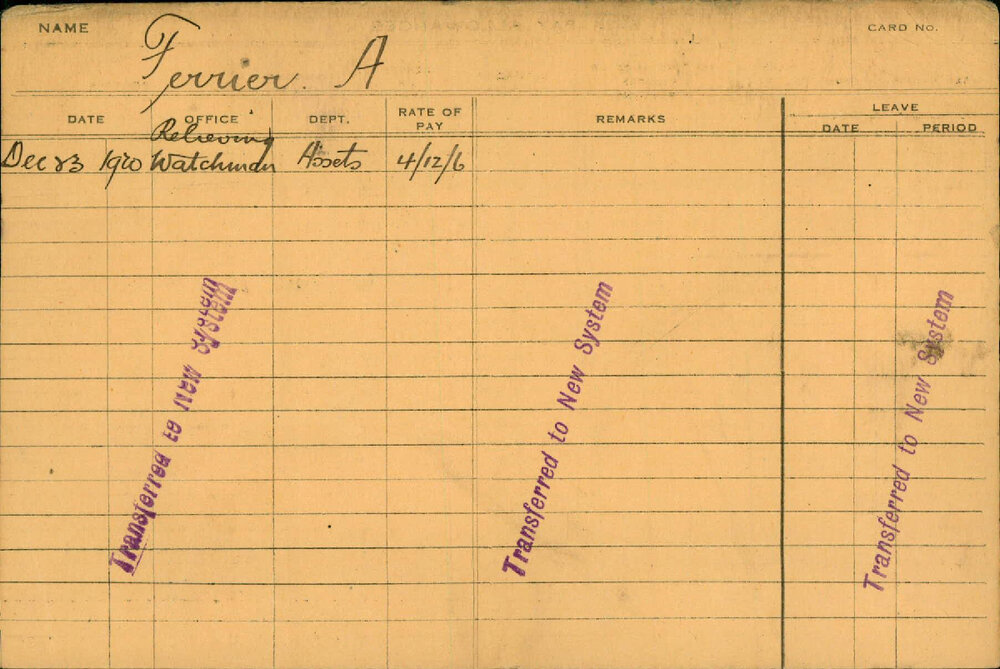 NAME
CARD NO.
Ferrier. A
DATE
OFFICE
DEPT.
RATE OF PAY
REMARKS
LEAVE
DATE
PERIOD
Relieving
Dec 23 1920 Watchman Assets 4/12/6
Transferred to New System
Transferred to New System
Transferred to New System